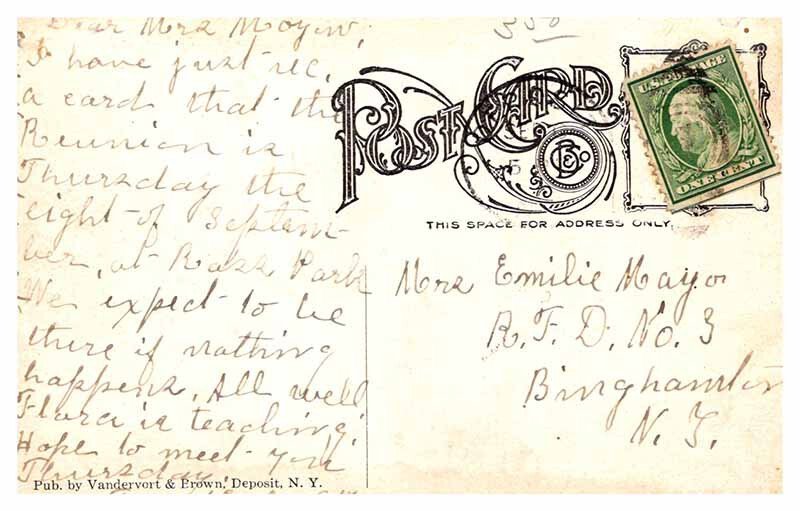 Dear Mrs Mayor,
I have just rec.
a card that the
Reunion is
Thursday the
eight of Septem-
ber, at Ross Park
We expect to be
there if nothing
happens. All well
Flora is teaching.
Hope to meet you
Thursday.
Pub. by Vandervort & Brown, Deposit, N. Y.
350
POST CARD
U.S. POSTAGE
ONE CENT
THIS SPACE FOR ADDRESS ONLY.
Mrs Emilie Mayor
R. F. D. No. 3
Binghamton
N. Y.